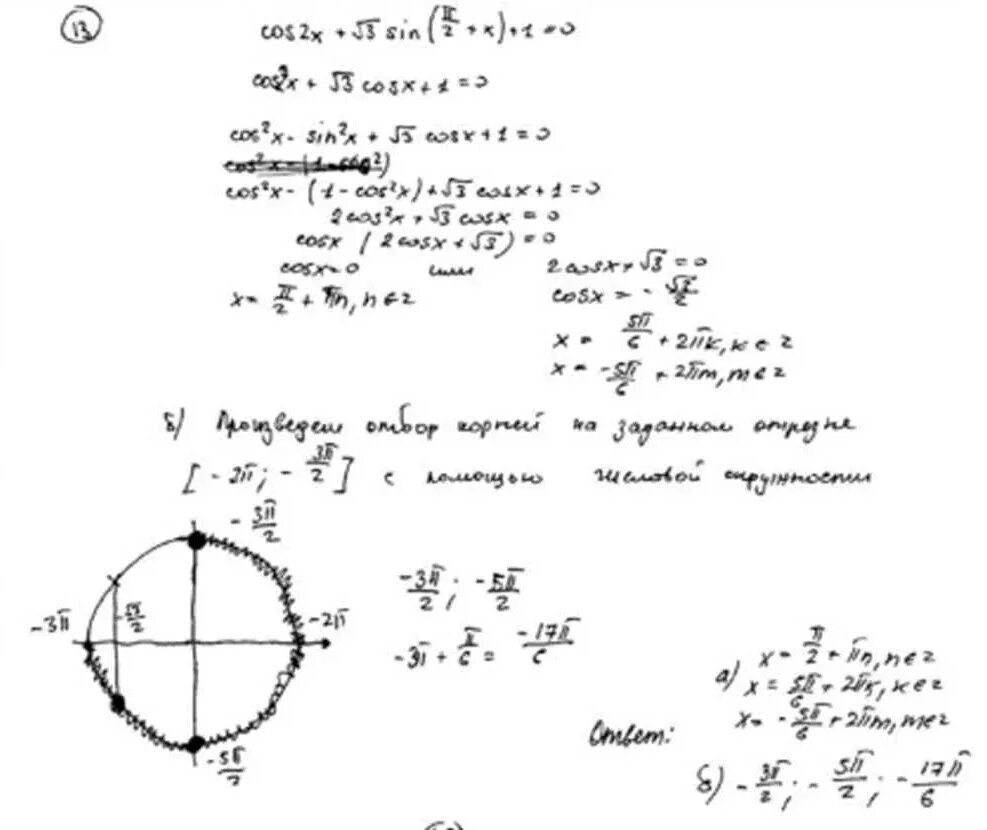 13
cos2x + √3 sin(π/2 + x) + 1 = 0
cos2x + √3 cosx + 1 = 0
cos²x - sin²x + √3 cosx + 1 = 0
cos²x - (1 - cos²x) + √3 cosx + 1 = 0
2cos²x + √3 cosx = 0
cosx (2cosx + √3) = 0
cosx = 0 или 2cosx + √3 = 0
x = π/2 + πn, n ∈ z cosx = -√3/2
x = 5π/6 + 2πk, k ∈ z
x = -5π/6 + 2πm, m ∈ z
б) Произведем отбор корней на заданном отрезке
[-2π; -3π/2] с помощью числовой окружности
-3π/2
-3π -√3/2 -2π
-5π/2
-3π/2; -5π/2
-3π + π/6 = -17π/6
Ответ:
а) x = π/2 + πn, n ∈ z
x = 5π/6 + 2πk, k ∈ z
x = -5π/6 + 2πm, m ∈ z
б) -3π/2; -5π/2; -17π/6